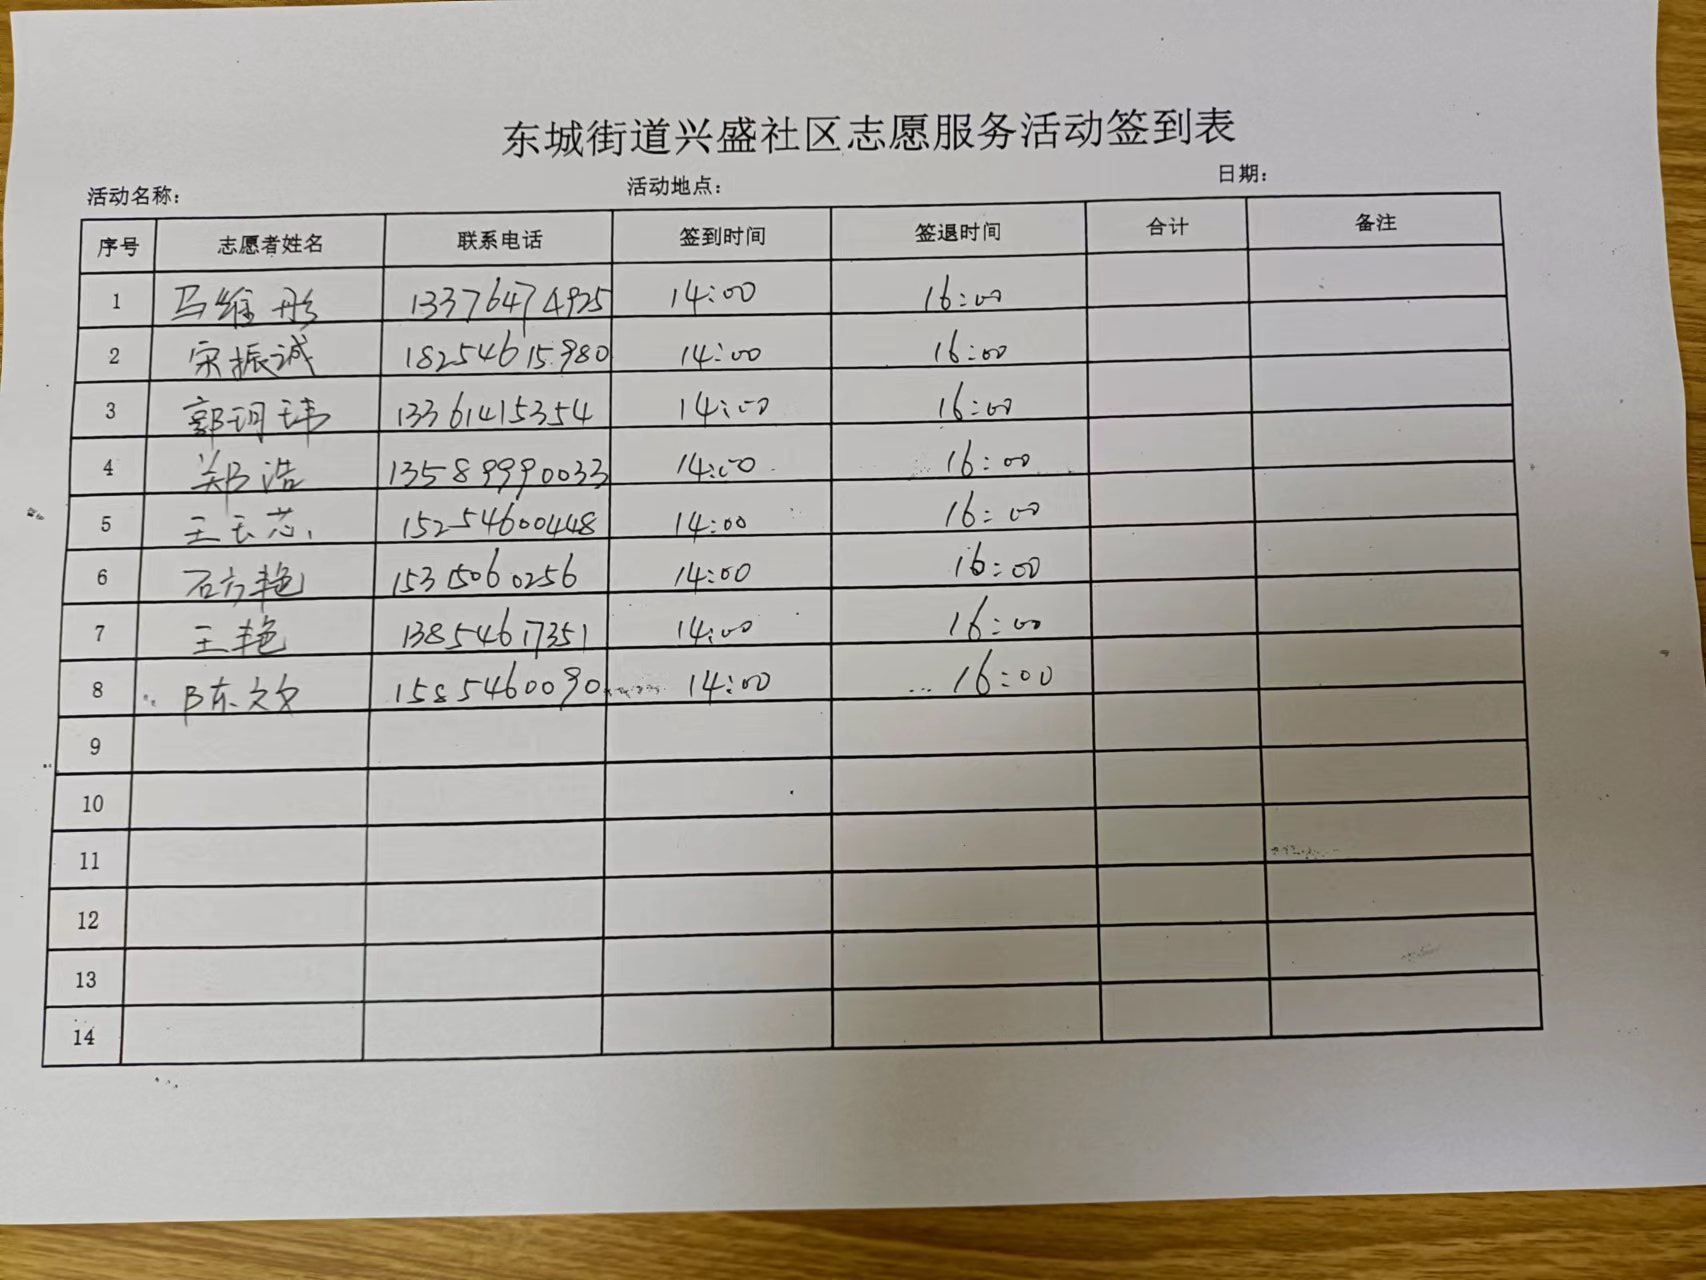 东城街道兴盛社区志愿服务活动签到表
活动名称： 活动地点： 日期：
序号 志愿者姓名 联系电话 签到时间 签退时间 合计 备注
1 马维彤 13376474925 14:00 16:00
2 宋振诚 18254615980 14:00 16:00
3 郭玥玮 13361415354 14:00 16:00
4 郑浩 13589990033 14:00 16:00
5 王玉芯 15254600448 14:00 16:00
6 石方艳 15315060256 14:00 16:00
7 王艳 13854617351 14:00 16:00
8 陈文 15854600 14:00 16:00
9
10
11
12
13
14